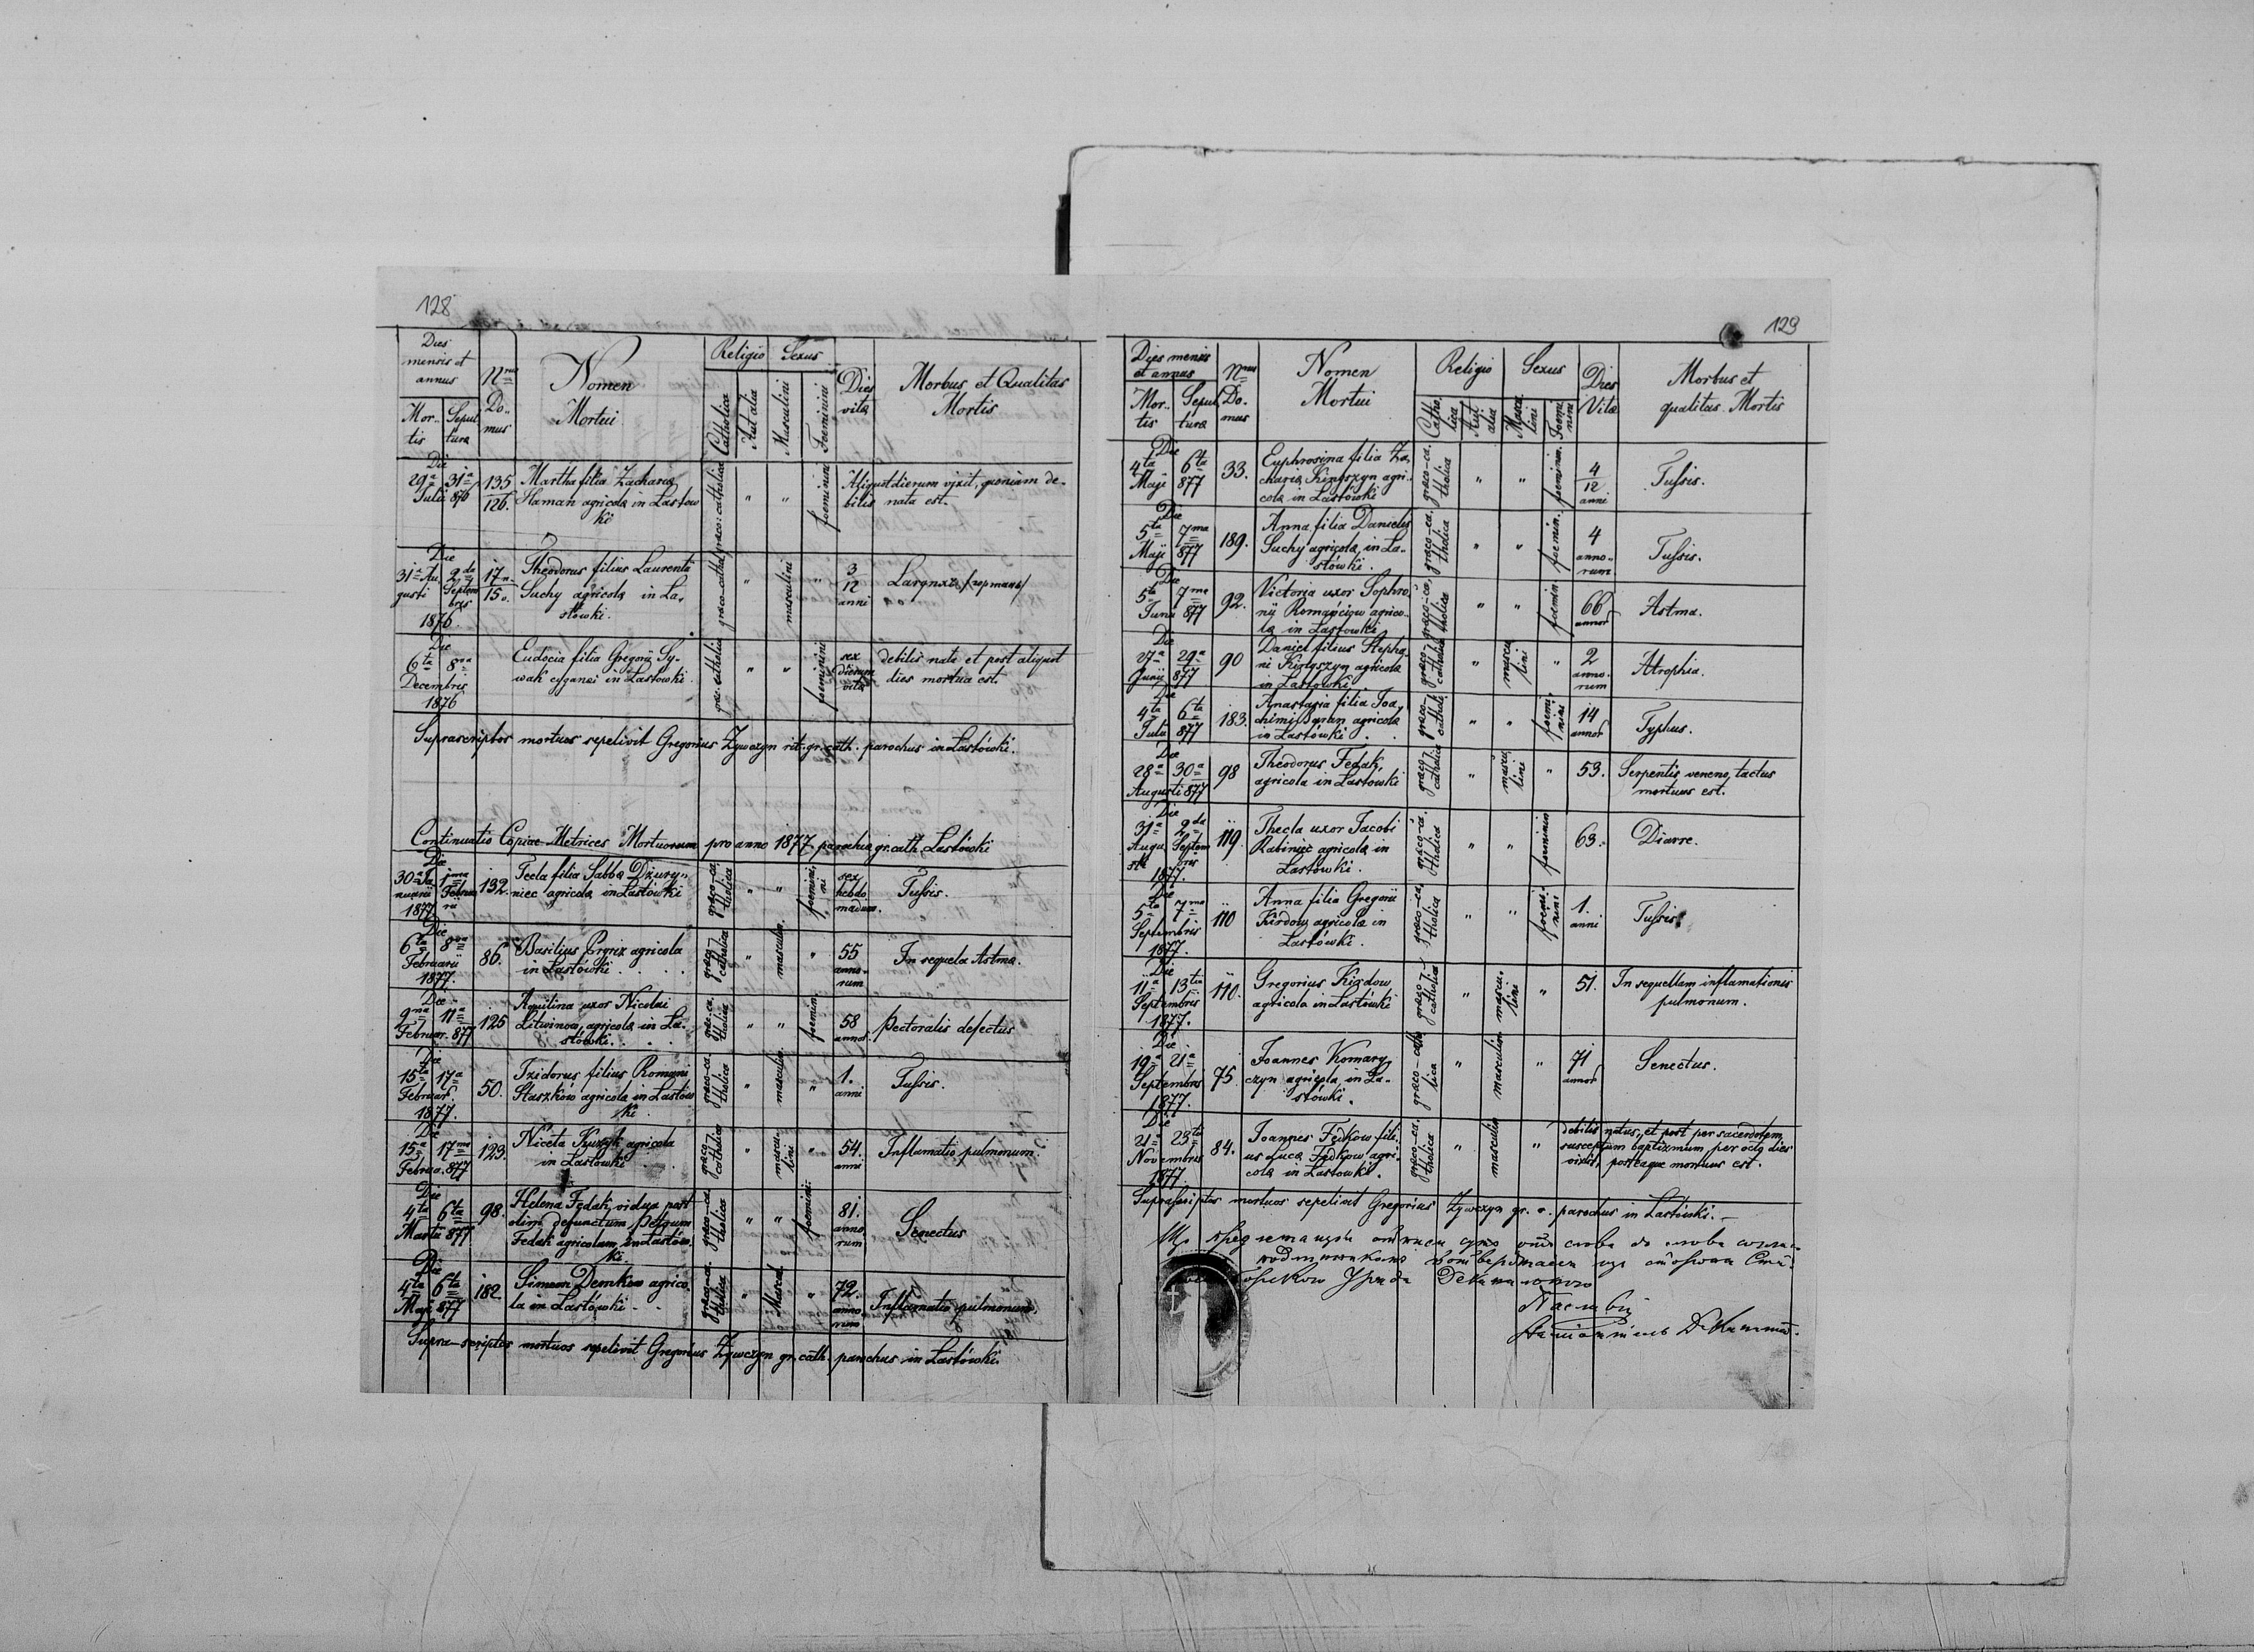 128
Dies mensis et annus
Mortis
Sepulturæ
Nrus Domus
Nomen Mortui
Religio
Catholica
Aut alia
Sexus
Masculini
Foeminini
Dies vitæ
Morbus et Qualitas Mortis
Die 29a 31a Julii 876
135
126.
Martha filia Zachariæ
Hamah agricolæ in Lastow
ki
græco: catholica
" "
foeminini
Aliquot dierum vixit, quoniam de-
bilis nata est.
Die 31a Au- 2da
gusti Septem
bris
1876.
17 n.
15 o.
Theodorus filius Laurentii
Suchy agricolæ in La-
stówki.
græco-cathol
"
masculini
"
3
12
anni
Die
6ta 8va
Decembris
1876
Eudocia filia Gregorii Sy-
wak cyganei in Lastowki.
græ. catholica
" "
foeminini
sex
dierum
vitæ
debilis nata et post aliquot
dies mortua est.
Suprascriptos mortuos sepelivit Gregorius Zywczyn rit. gr. cath. parochus in Lastówki.
Continuatio Copiae Metrices Mortuorum pro anno 1877 parochiæ gr. cath. Lastówki
Die
30a Ja- 1ma
nuarii Februa
rii
1877
132.
Tecla filia Sabbæ Dzuryn
niec agricolæ in Lastówki
græco-ca-
tholica
" "
foemini-
ni
sex
hebdo
madum.
Tussis.
Die
6ta 8va
Februarii
1877.
86.
Basilius Prgriz agricola
in Lastówki . . .
græco-
catholica
"
masculin.
"
55
anno-
rum
In sequela Astma.
Die
9na 11a
Februar. 877
125
Aquilina uxor Nicolai
Litwinow, agricolæ in La-
stówki. . . .
græc.ca-
tholica
" "
foemin.
58
annor
Pectoralis defectus
Die
15ta 17a
Februar.
1877.
50.
Izidorus filius Romani
Staszków agricolæ in Lastów
ki.
græco-ca
tholica
"
masculin.
"
1.
anni
Tussis.
Die
15a 17ma
Februa. 877
123.
Niceta Kuzyk agricola
in Lastówki . .
græco-
catholica
"
mascu-
lini
"
54.
anni
Inflamatio pulmonum.
Die
4ta 6ta
Martii 877
98.
Helena Fedak, vidua post
olim defunctum Petrum
Fedak agricolam in Lastów-
ki.
græco-ca-
tholica
" "
foeminini
81.
anno
rum
Senectus
Die
4ta 6ta
Maji 877
182.
Simeon Demkow agrico-
la in Lastówki - -
græco-ca-
tholica
"
Mascul.
"
72.
anno
rum
Inflamatio pulmonum.
Supra-scriptos mortuos sepelivit Gregorius Zywczyn gr. cath. parochus in Lastówki.
129
Dies mensis et annus
Mortis
Sepulturæ
Nrus Domus
Nomen Mortui
Religio
Catholica
Aut alia
Sexus
Masculini
Foeminini
Dies Vitæ
Morbus et qualitas Mortis
Die
4ta 6ta
Maji 877
33.
Euphrosina filia Za-
chariæ Kingszyn agri-
colæ in Lastówki
græco-ca-
tholica
" "
foeminin.
4
12
anni
Tussis.
Die
5ta 7ma
Maji 877
189.
Anna filia Danielis
Suchy agricolæ in La-
stówki.
græco-ca-
tholica
" "
foemin.
4
anno-
rum
Tussis.
Die
5ta 7ma
Junii 877
92.
Victoria uxor Sophro-
nii Romańciów agrico-
læ in Lastowki
græco-ca-
tholica
" "
foemin
66
annor
Astma.
Die
27a 29a
Junii 877
90
Daniel filius Stepha-
ni Kingszyn agricolæ
in Lastowki
græco-
catholica
"
mascu
lini
"
2
anno-
rum
Atrophia.
Die
4ta 6ta
Julii 877
183.
Anastasia filia Joa-
chimi Baran agricolæ
in Lastówki . .
græco-
catholi
" "
foemi-
nini
14
annor
Typhus.
Die
28a 30a
Augusti 877
98
Theodorus Fedak,
agricola in Lastowki
græco-
catholica
"
mascu
lini
"
53.
Serpentis veneno tactus
mortuus est.
Die
31a 2da
Augu Septem
sti bris
1877.
119.
Thecla uxor Jacobi
Rabiniec agricolæ in
Lastówki.
græco-ca-
tholica
" "
foeminini
63.
Diarre.
Die
5ta 7ma
Septembris
1877.
110
Anna filia Gregorii
Kirdow agricolæ in
Lastówki.
græco-ca-
tholica
" "
foemi-
nini
1.
anni
Tussis.
Die
11a 13tia
Septembris
1877.
110.
Gregorius Kirdow
agricola in Lastówki
græco-
catholica
"
mascu-
lini
"
51.
In sequellam inflamationis
pulmonum.
Die
19a 21a
Septembris
1877.
75.
Joannes Komary
czyn agricola in La-
stówki.
græco-catho
lica
"
masculin
"
71
annor
Senectus.
Die
21a 23tia
Novembris
1877
84.
Joannes Fedkow fili-
us Lucæ Fedkow agri-
colæ in Lastowki.
græco-ca-
tholica
"
masculin
"
debilis natus, et post per sacerdotem,
susceptum baptizmum, per octo dies
vixit, posteaque mortuus est.
Suprascriptos mortuos sepelivit Gregorius Zywczyn gr. c. parochus in Lastówki.
слова до слова